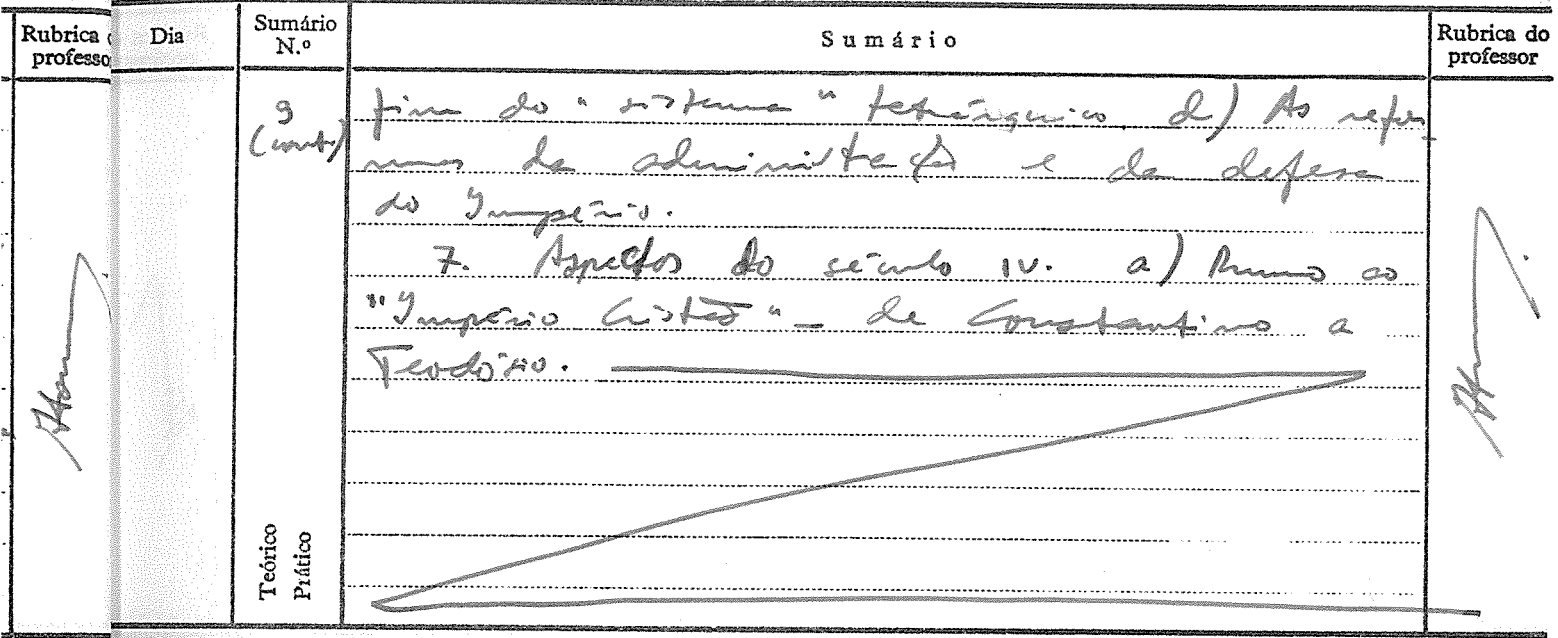 Rubrica
professo
Dia
Sumário
N.º
Sumário
Rubrica do
professor
9
(cont.)
fim do "sistema" tetrárquico. d) As refor-
mas da administração e da defesa
do Império.
7. Aspectos do século IV. a) Rumo ao
"Império Cristão" - de Constantino a
Teodósio.
Teórico
Prático